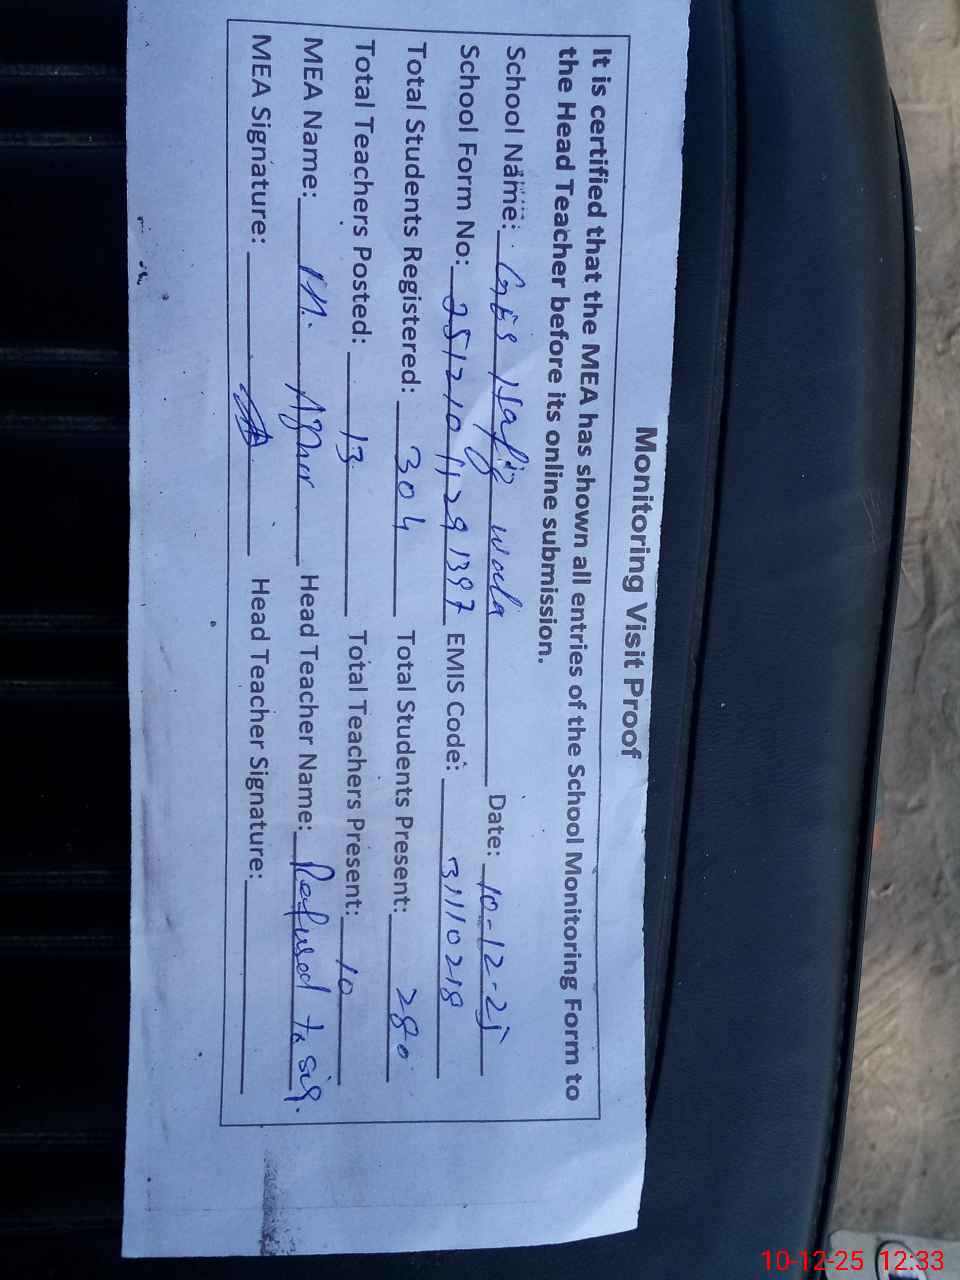 Monitoring Visit Proof
It is certified that the MEA has shown all entries of the School Monitoring Form to
the Head Teacher before its online submission.
School Name: GES Hafiz wala Date: 10-12-25
School Form No: 25121011291397 EMIS Code: 31110218
Total Students Registered: 304 Total Students Present: 280
Total Teachers Posted: 13 Total Teachers Present: 10
MEA Name: M. Head Teacher Name: Refused to sig.
MEA Signature: Head Teacher Signature:
10-12-25 12:33